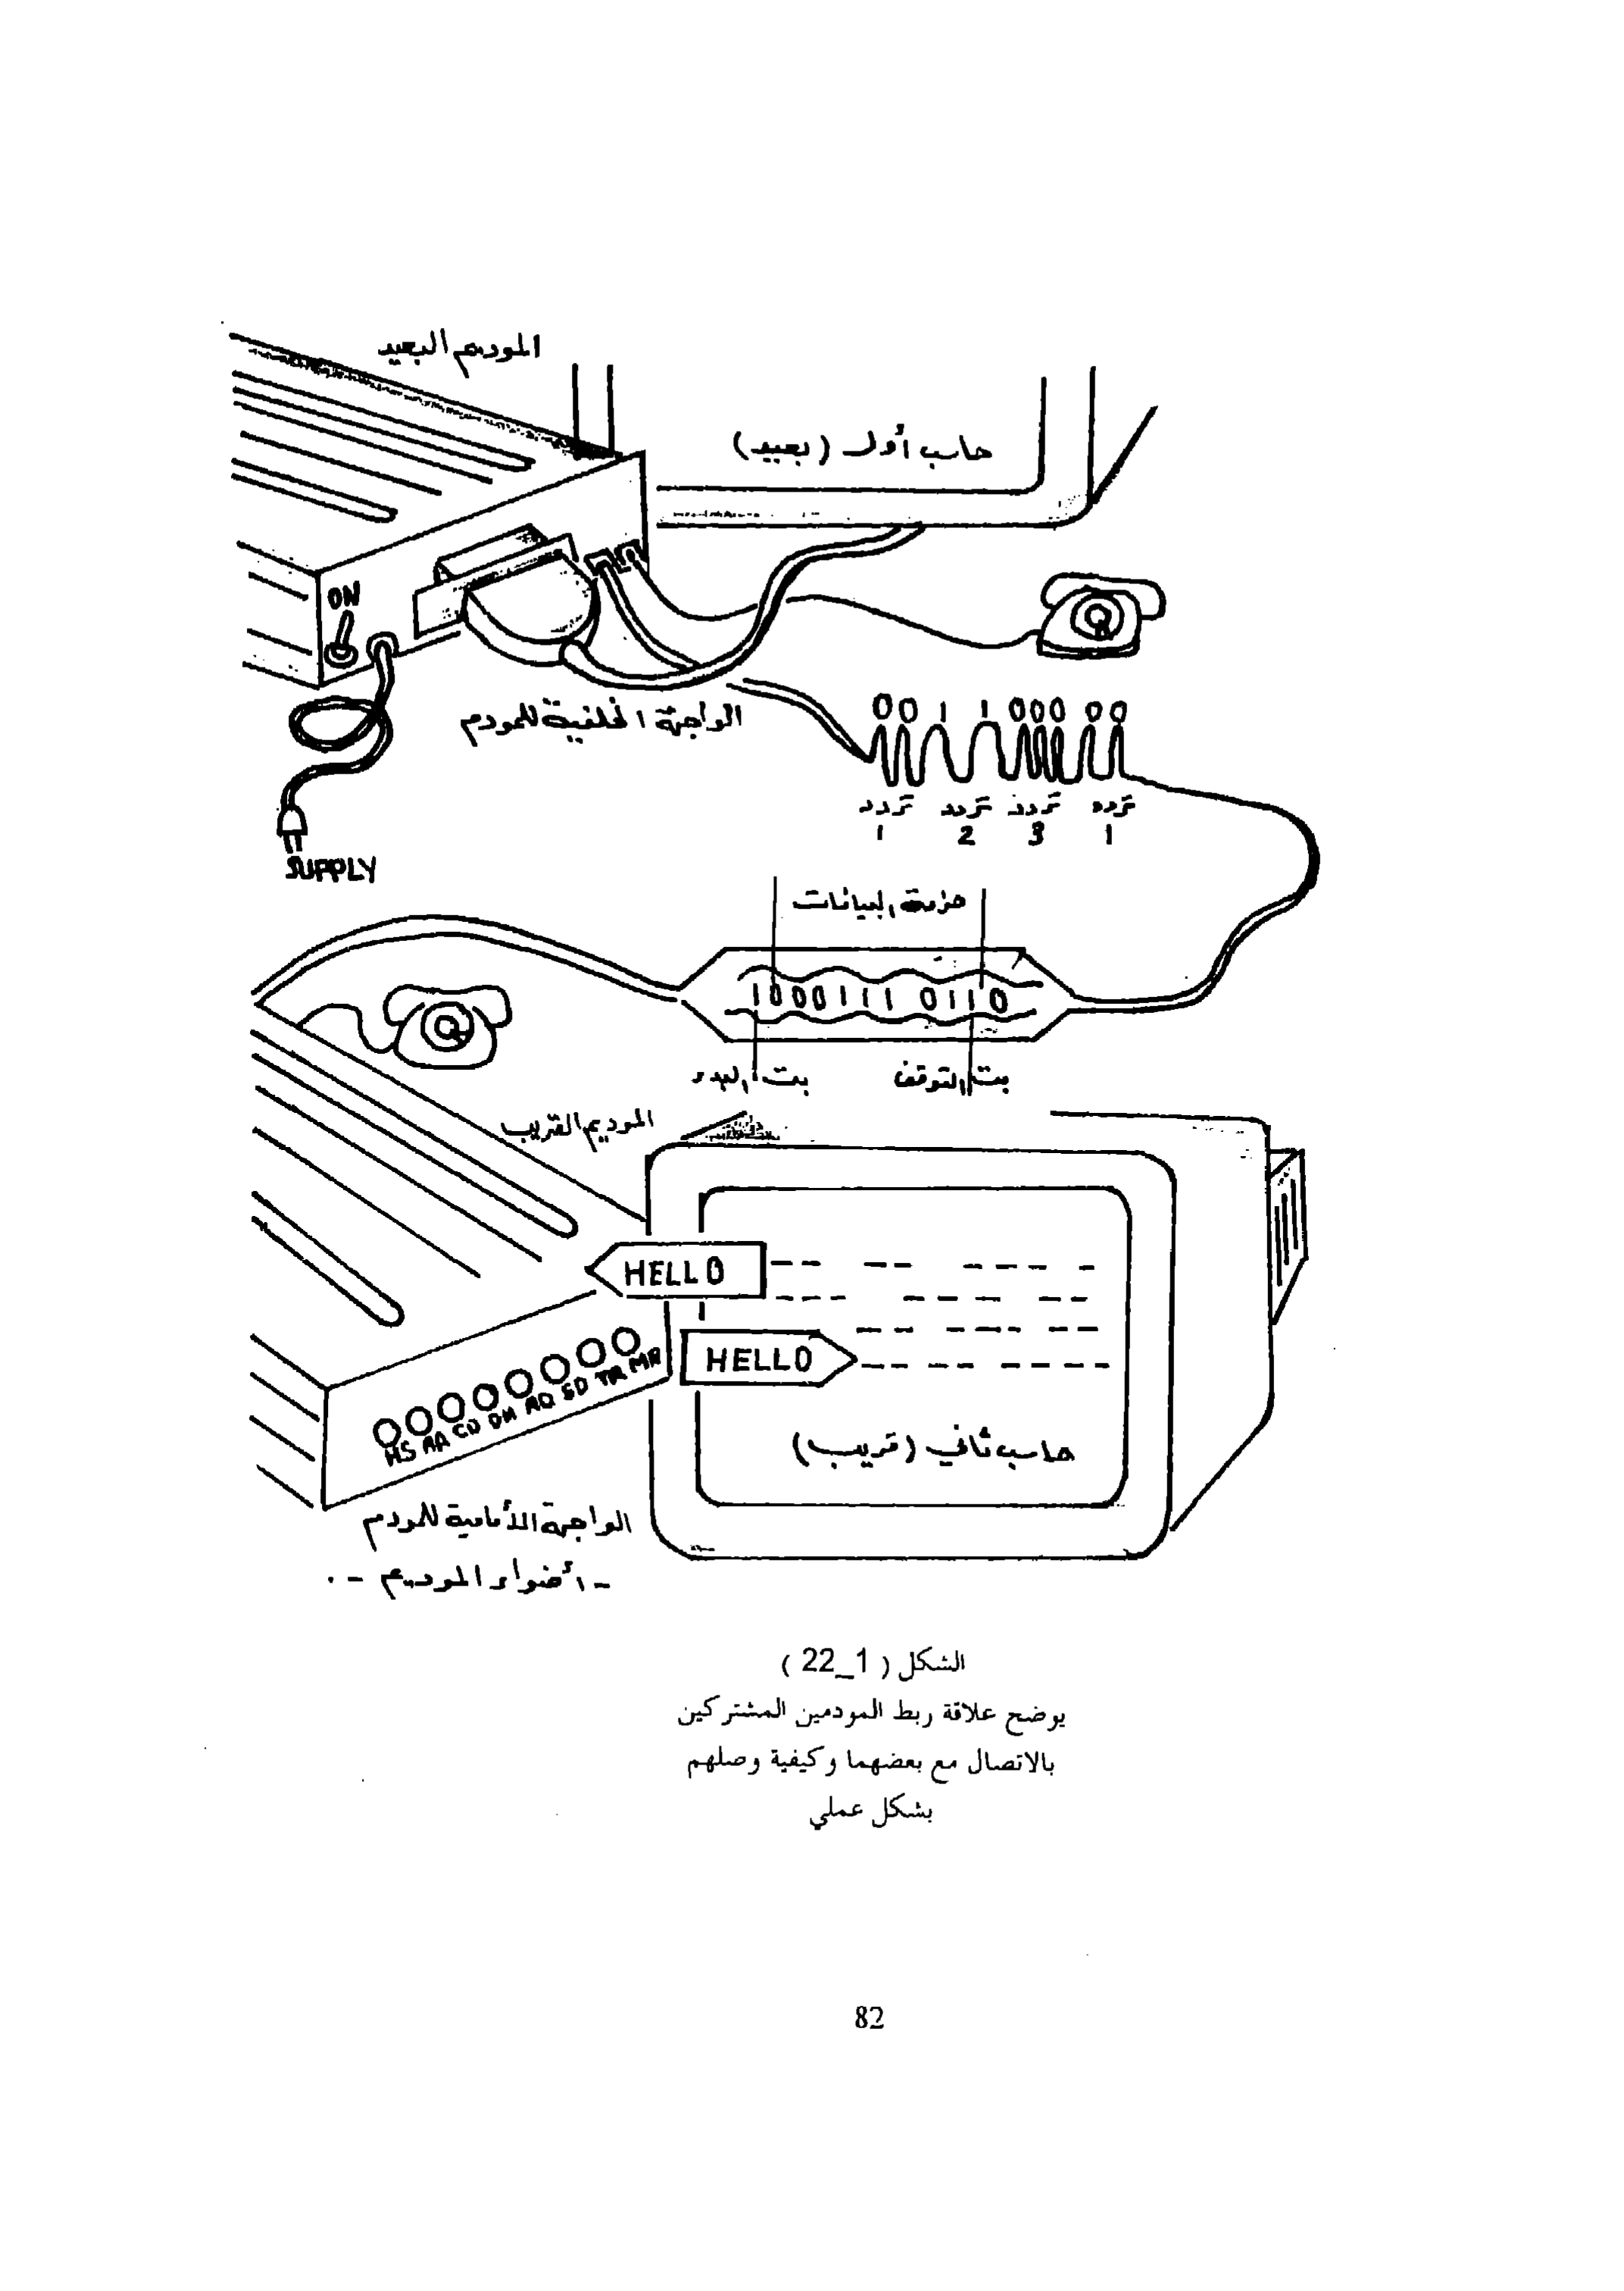 الموديم البعيد
حاسب أول (بعيد)
ON
الواجهة الخلفية للمودم
0 0 1 1 0 0 0 0 0
تردد تردد تردد تردد
1 2 3 1
SUPPLY
حزمة البيانات
1000111 0110
بت البدء بت التوقف
الموديم القريب
HELLO
HELLO
HS AA CD OH RD SD TR MR
حاسب ثاني (قريب)
الواجهة الأمامية للمودم
- أضواء الموديم -
الشكل ( 1_22 )
يوضح علاقة ربط المودمين المشتركين
بالاتصال مع بعضهما وكيفية وصلهم
بشكل عملي
82